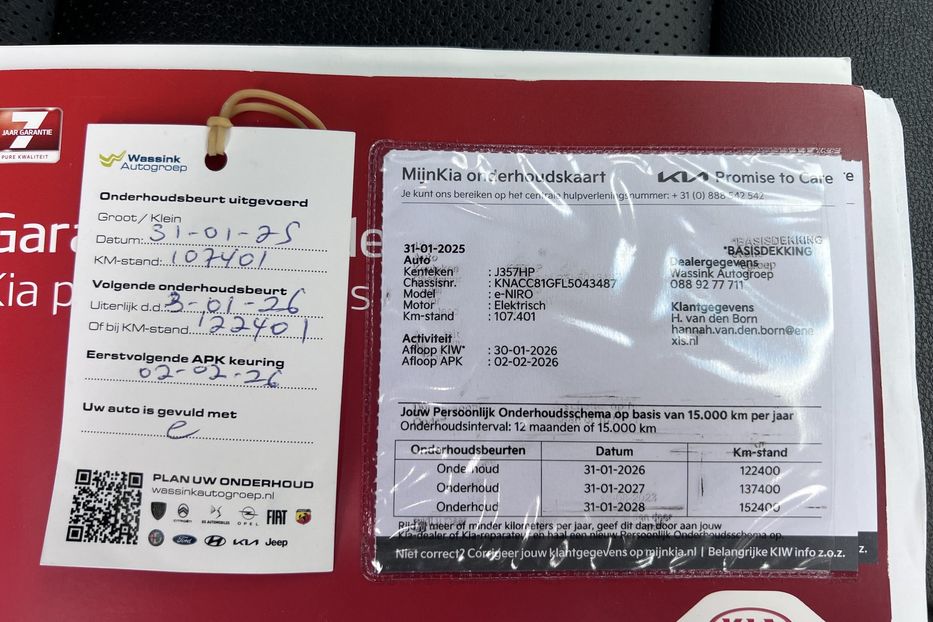 7
JAAR GARANTIE
PURE KWALITEIT
Gara
Kia p
Wassink
Autogroep
Onderhoudsbeurt uitgevoerd
Groot / Klein
Datum: 31-01-25
KM-stand: 107401
Volgende onderhoudsbeurt
Uiterlijk d.d. 3-01-26
Of bij KM-stand 122401
Eerstvolgende APK keuring
02-02-26
Uw auto is gevuld met
e
PLAN UW ONDERHOUD
wassinkautogroep.nl
CITROËN
DS AUTOMOBILES
OPEL
FIAT
Ford
HYUNDAI
KIA
Jeep
MijnKia onderhoudskaart
KIA Promise to Care
Je kunt ons bereiken op het centrale hulpverleningsnummer: + 31 (0) 888 542 542
31-01-2025
*BASISDEKKING
Auto
Kenteken : J357HP
Chassisnr. : KNACC81GFL5043487
Model : e-NIRO
Motor : Elektrisch
Km-stand : 107.401
Dealergegevens
Wassink Autogroep
088 92 77 711
Klantgegevens
H. van den Born
hannah.van.den.born@ene
xis.nl
Activiteit
Afloop KIW* : 30-01-2026
Afloop APK : 02-02-2026
Jouw Persoonlijk Onderhoudsschema op basis van 15.000 km per jaar
Onderhoudsinterval: 12 maanden of 15.000 km
Onderhoudsbeurten Datum Km-stand
Onderhoud 31-01-2026 122400
Onderhoud 31-01-2027 137400
Onderhoud 31-01-2028 152400
Rij jij meer of minder kilometers per jaar, geef dit dan door aan jouw
Kia-dealer of Kia-reparateur en haal een nieuw Persoonlijk Onderhoudsschema op.
Niet correct? Corrigeer jouw klantgegevens op mijnkia.nl | Belangrijke KIW info z.o.z.
KIA